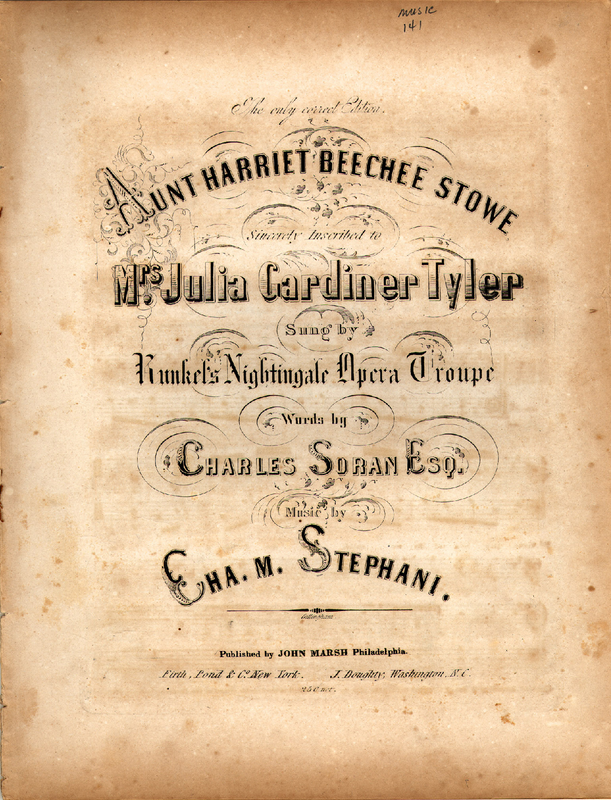 music
141
The only correct Edition.
AUNT HARRIET BEECHEE STOWE
Sincerely Inscribed to
Mrs. Julia Gardiner Tyler
Sung by
Kunkel's Nightingale Opera Troupe
Words by
CHARLES SORAN ESQ.
Music by
CHA. M. STEPHANI.
Published by JOHN MARSH Philadelphia.
Firth, Pond & Co. New York. J. Doughty, Washington, N.C.
25 C. net.